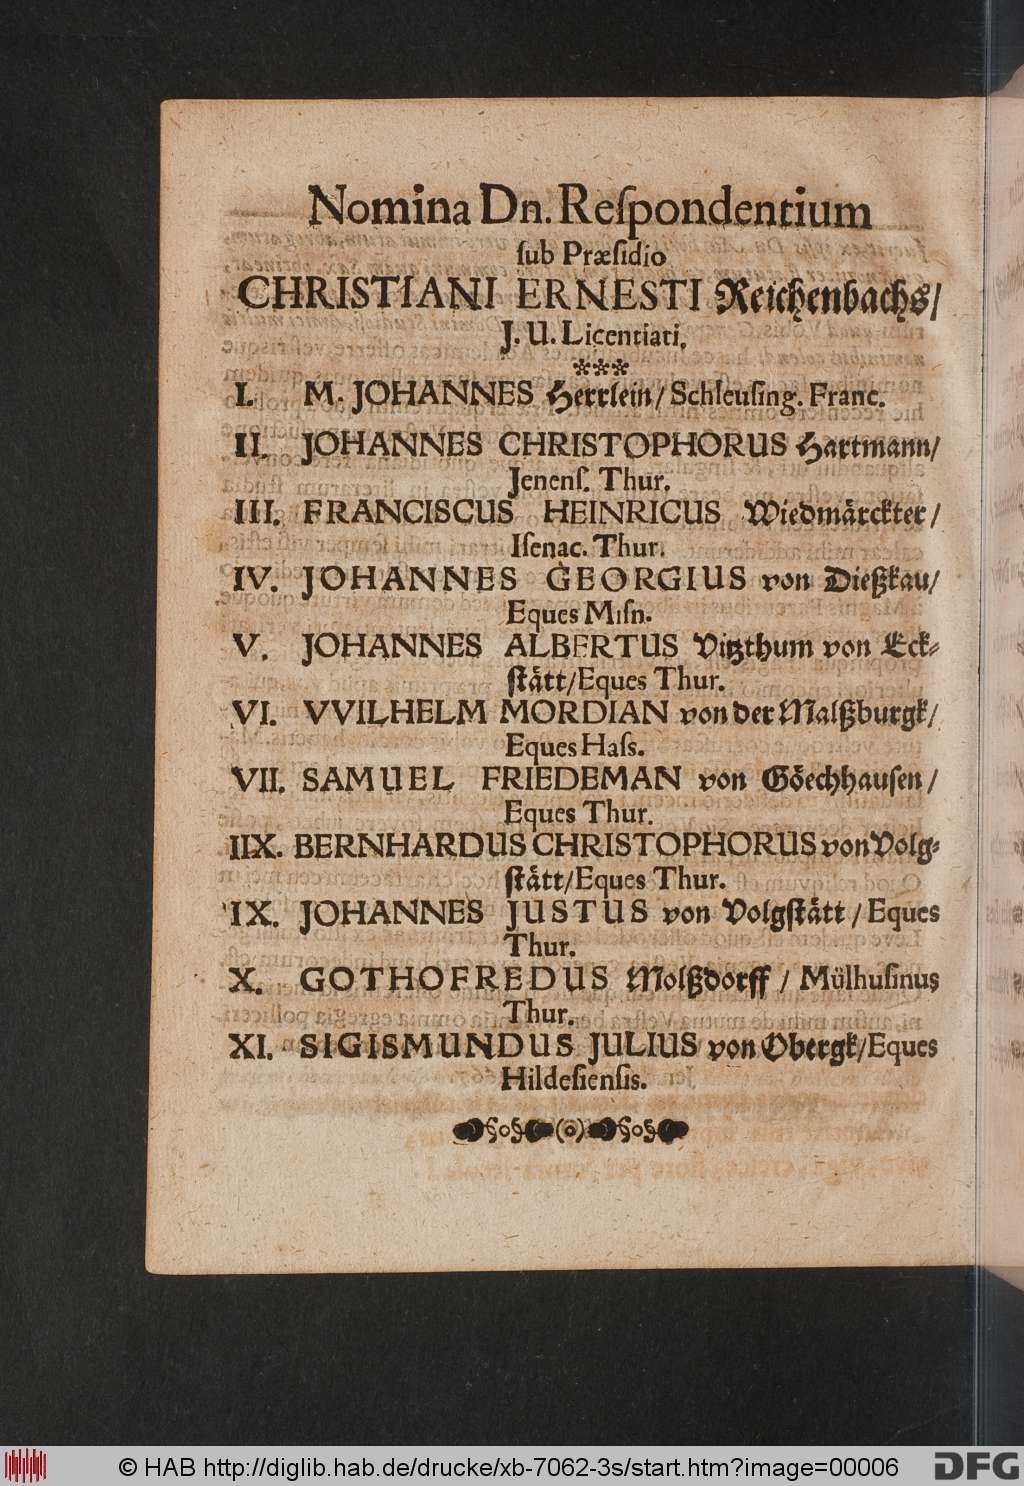 Nomina Dn. Reſpondentium
ſub Præſidio
CHRISTIANI ERNESTI Reichenbachs/
J. U. Licentiati.
***
I. M. JOHANNES Herrlein/ Schleuſing. Franc.
II. JOHANNES CHRISTOPHORUS Hartmann/
Jenenſ. Thur.
III. FRANCISCUS HEINRICUS Wiedmärckter/
Iſenac. Thur.
IV. JOHANNES GEORGIUS von Dießkau/
Eques Miſn.
V. JOHANNES ALBERTUS Vitzthum von Eck-
ſtätt/Eques Thur.
VI. VVILHELM MORDIAN von der Malßburgk/
Eques Haſs.
VII. SAMUEL FRIEDEMAN von Göechhauſen/
Eques Thur.
IIX. BERNHARDUS CHRISTOPHORUS von Volg-
ſtätt/Eques Thur.
IX. JOHANNES JUSTUS von Volgſtätt/Eques
Thur.
X. GOTHOFREDUS Molßdorff/ Mülhuſinus
Thur.
XI. SIGISMUNDUS JULIUS von Obergk/Eques
Hildeſienſis.
© HAB http://diglib.hab.de/drucke/xb-7062-3s/start.htm?image=00006
DFG